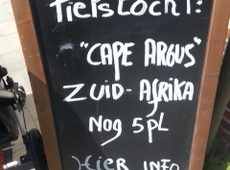 Fietstocht:
"CAPE ARGUS"
ZUID-AFRIKA
Nog 5pl
Hier INFO